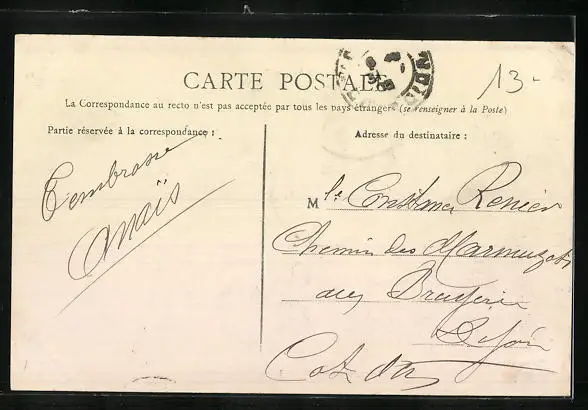 CARTE POSTALE
13-
La Correspondance au recto n'est pas acceptée par tous les pays étrangers (se renseigner à la Poste)
Partie réservée à la correspondance :
Adresse du destinataire :
T'embrasse
Anaïs
M lle Constance Renier
Chemin des Marmuzots
aux Bruyère
Dijon
Cote d'Or